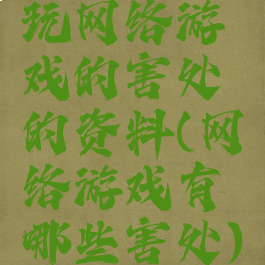 玩网络游
戏的害处
的资料(网
络游戏有
哪些害处)